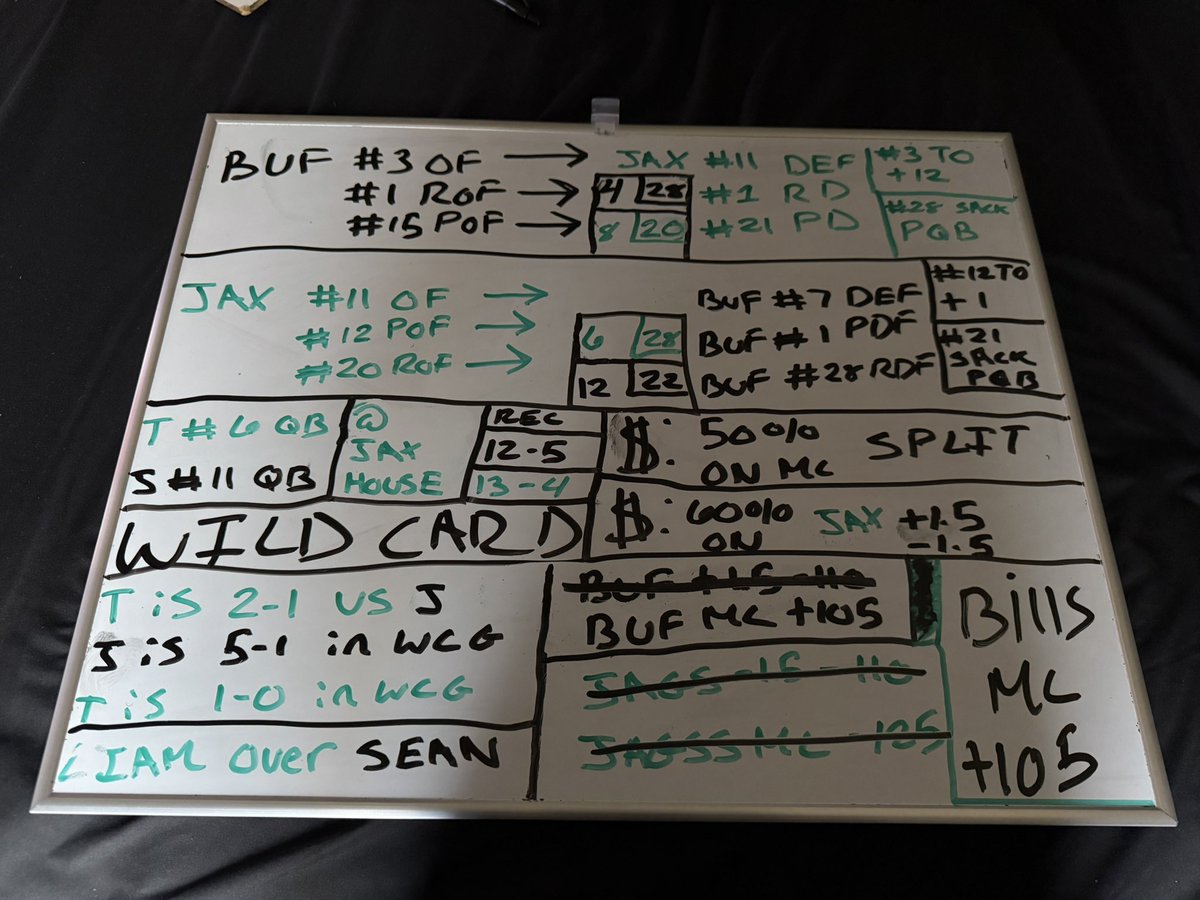 BUF #3 OF → JAX #11 DEF
#1 ROF → 4 28 #1 RD
#15 POF → 8 20 #21 PD
#3 TO
+12
#28 SACK
PQB
JAX #11 OF → BUF #7 DEF
#12 POF → 6 28 BUF #1 PDF
#20 ROF → 12 22 BUF #28 RDF
#12 TO
+1
#21
SACK
PQB
T #6 QB
J #11 QB
@
JAX
HOUSE
REC
12-5
13-4
$: 50%
ON ML
SPLIT
WILD CARD
$: 60%
ON
JAX +1.5
-1.5
T is 2-1 VS J
J is 5-1 in WCG
T is 1-0 in WCG
LIAM over SEAN
BUF +1.5 -110
BUF ML +105
JAGS -1.5 -110
JAGSS ML -125
Bills
ML
+105